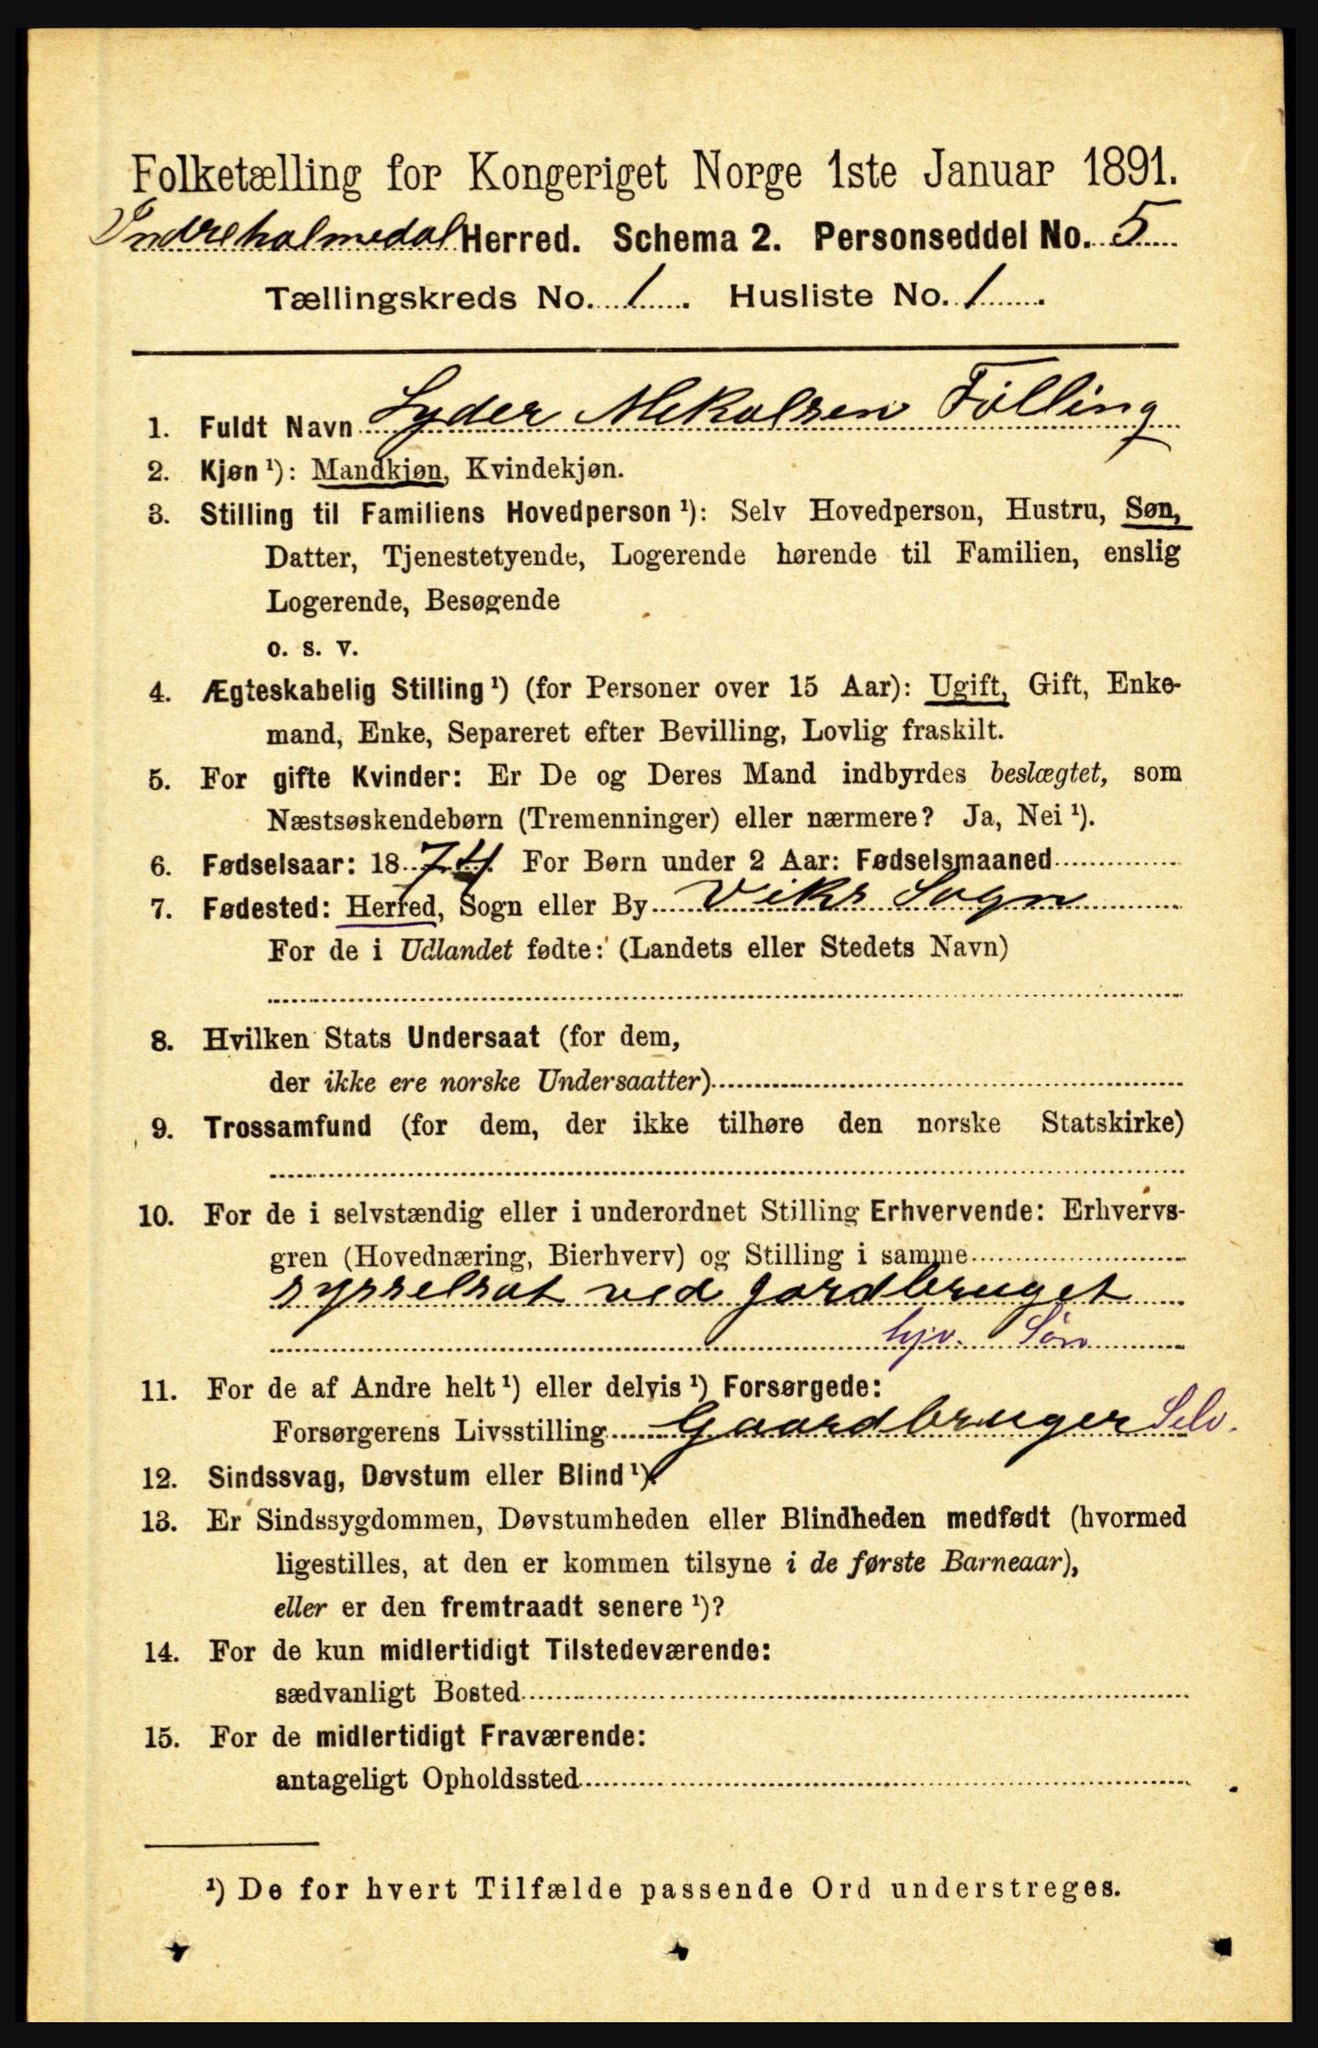 Folketælling for Kongeriget Norge 1ste Januar 1891.
Indreholmedal Herred. Schema 2. Personseddel No. 5
Tællingskreds No. 1. Husliste No. 1.
1. Fuldt Navn Lyder Mekalsen Följing
2. Kjøn ¹): Mandkjøn, Kvindekjøn.
3. Stilling til Familiens Hovedperson ¹): Selv Hovedperson, Hustru, Søn,
Datter, Tjenestetyende, Logerende hørende til Familien, enslig
Logerende, Besøgende
o. s. v.
4. Ægteskabelig Stilling ¹) (for Personer over 15 Aar): Ugift, Gift, Enke-
mand, Enke, Separeret efter Bevilling, Lovlig fraskilt.
5. For gifte Kvinder: Er De og Deres Mand indbyrdes beslægtet, som
Næstsøskendebørn (Tremenninger) eller nærmere? Ja, Nei ¹).
6. Fødselsaar: 1874. For Børn under 2 Aar: Fødselsmaaned
7. Fødested: Herred, Sogn eller By Viks Sogn
For de i Udlandet fødte: (Landets eller Stedets Navn)
8. Hvilken Stats Undersaat (for dem,
der ikke ere norske Undersaatter)
9. Trossamfund (for dem, der ikke tilhøre den norske Statskirke)
10. For de i selvstændig eller i underordnet Stilling Erhvervende: Erhvervs-
gren (Hovednæring, Bierhverv) og Stilling i samme
sysselsat ved jordbruget
hjv. Søn
11. For de af Andre helt ¹) eller delvis ¹) Forsørgede:
Forsørgerens Livsstilling Gaardbruger Selv.
12. Sindssvag, Døvstum eller Blind ¹).
13. Er Sindssygdommen, Døvstumheden eller Blindheden medfødt (hvormed
ligestilles, at den er kommen tilsyne i de første Barneaar),
eller er den fremtraadt senere ¹)?
14. For de kun midlertidigt Tilstedeværende:
sædvanligt Bosted
15. For de midlertidigt Fraværende:
antageligt Opholdssted
¹) De for hvert Tilfælde passende Ord understreges.